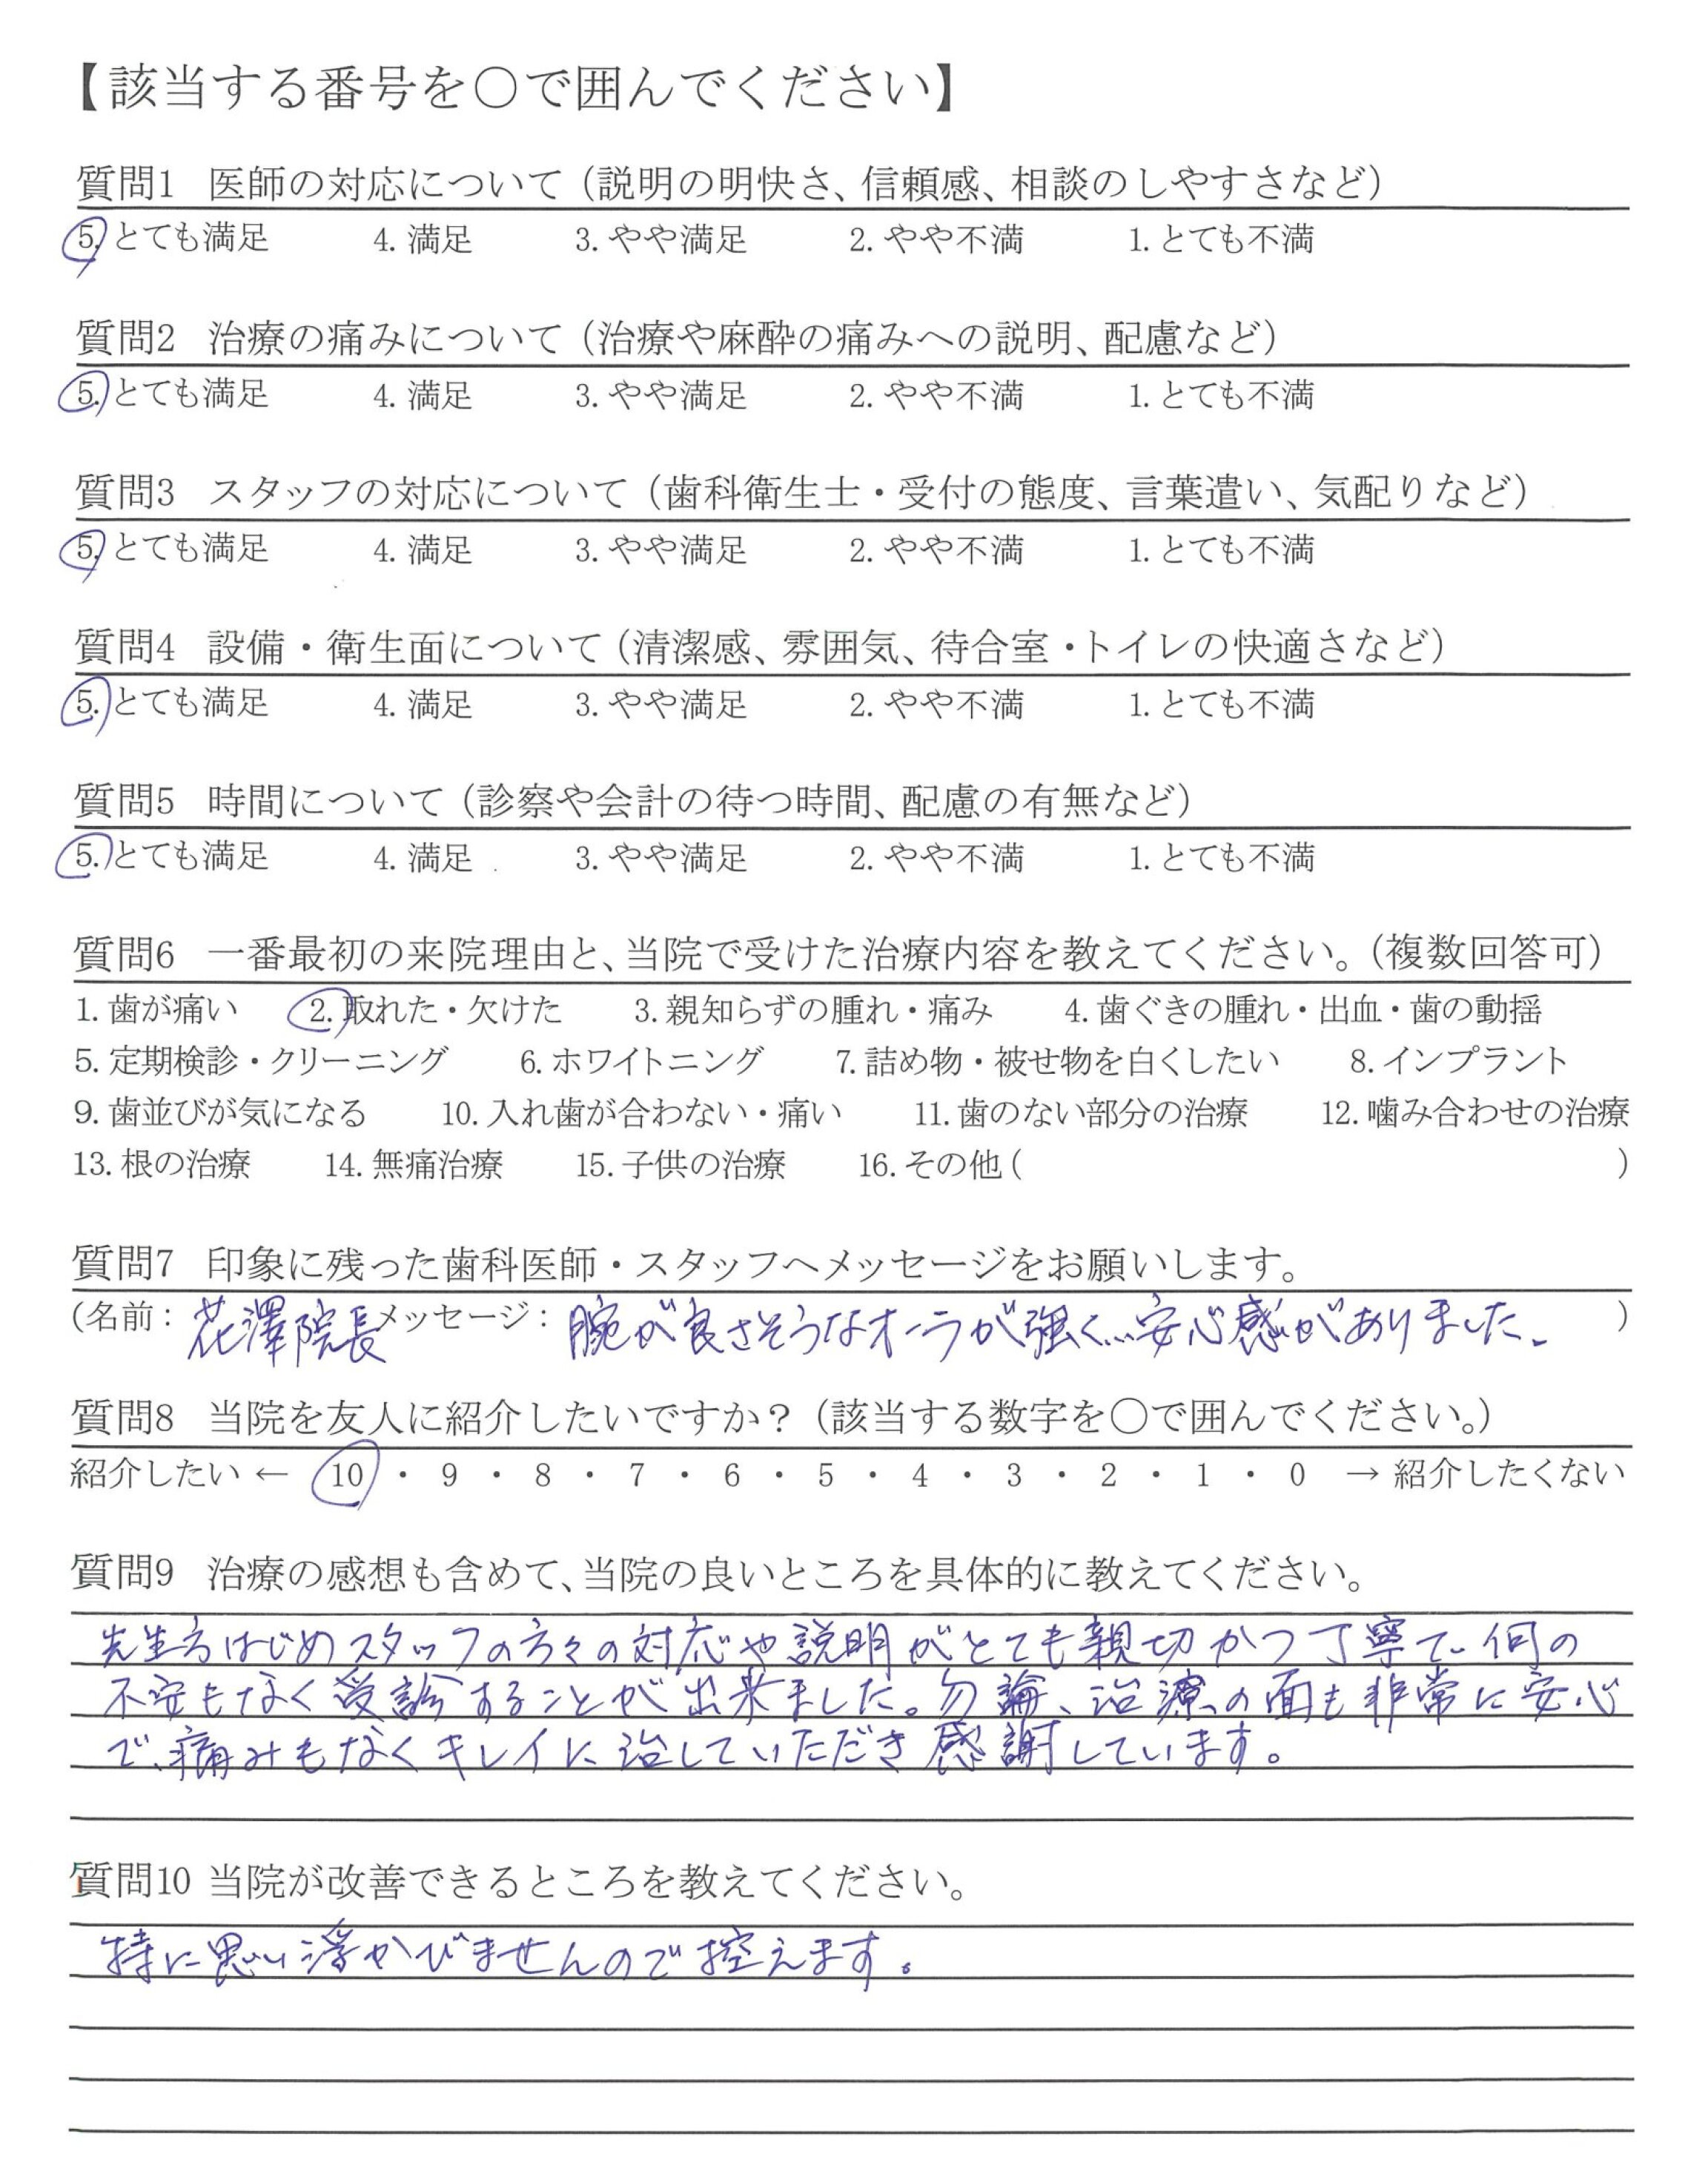 【該当する番号を○で囲んでください】
質問1 医師の対応について（説明の明快さ、信頼感、相談のしやすさなど）
5. とても満足 4. 満足 3. やや満足 2. やや不満 1. とても不満
質問2 治療の痛みについて（治療や麻酔の痛みへの説明、配慮など）
5. とても満足 4. 満足 3. やや満足 2. やや不満 1. とても不満
質問3 スタッフの対応について（歯科衛生士・受付の態度、言葉遣い、気配りなど）
5. とても満足 4. 満足 3. やや満足 2. やや不満 1. とても不満
質問4 設備・衛生面について（清潔感、雰囲気、待合室・トイレの快適さなど）
5. とても満足 4. 満足 3. やや満足 2. やや不満 1. とても不満
質問5 時間について（診察や会計の待つ時間、配慮の有無など）
5. とても満足 4. 満足 3. やや満足 2. やや不満 1. とても不満
質問6 一番最初の来院理由と、当院で受けた治療内容を教えてください。（複数回答可）
1. 歯が痛い 2. 取れた・欠けた 3. 親知らずの腫れ・痛み 4. 歯ぐきの腫れ・出血・歯の動揺
5. 定期検診・クリーニング 6. ホワイトニング 7. 詰め物・被せ物を白くしたい 8. インプラント
9. 歯並びが気になる 10. 入れ歯が合わない・痛い 11. 歯のない部分の治療 12. 噛み合わせの治療
13. 根の治療 14. 無痛治療 15. 子供の治療 16. その他（ ）
質問7 印象に残った歯科医師・スタッフへメッセージをお願いします。
（名前： 花澤院長 メッセージ： 腕が良さそうなオーラが強く…安心感がありました。 ）
質問8 当院を友人に紹介したいですか？（該当する数字を○で囲んでください。）
紹介したい ← 10 ・ 9 ・ 8 ・ 7 ・ 6 ・ 5 ・ 4 ・ 3 ・ 2 ・ 1 ・ 0 → 紹介したくない
質問9 治療の感想も含めて、当院の良いところを具体的に教えてください。
先生方はじめスタッフの方々の対応や説明がとても親切かつ丁寧で、何の
不安もなく受診することが出来ました。勿論、治療の面も非常に安心
で、痛みもなくキレイに治していただき感謝しています。
質問10 当院が改善できるところを教えてください。
特に思い浮かびませんので控えます。